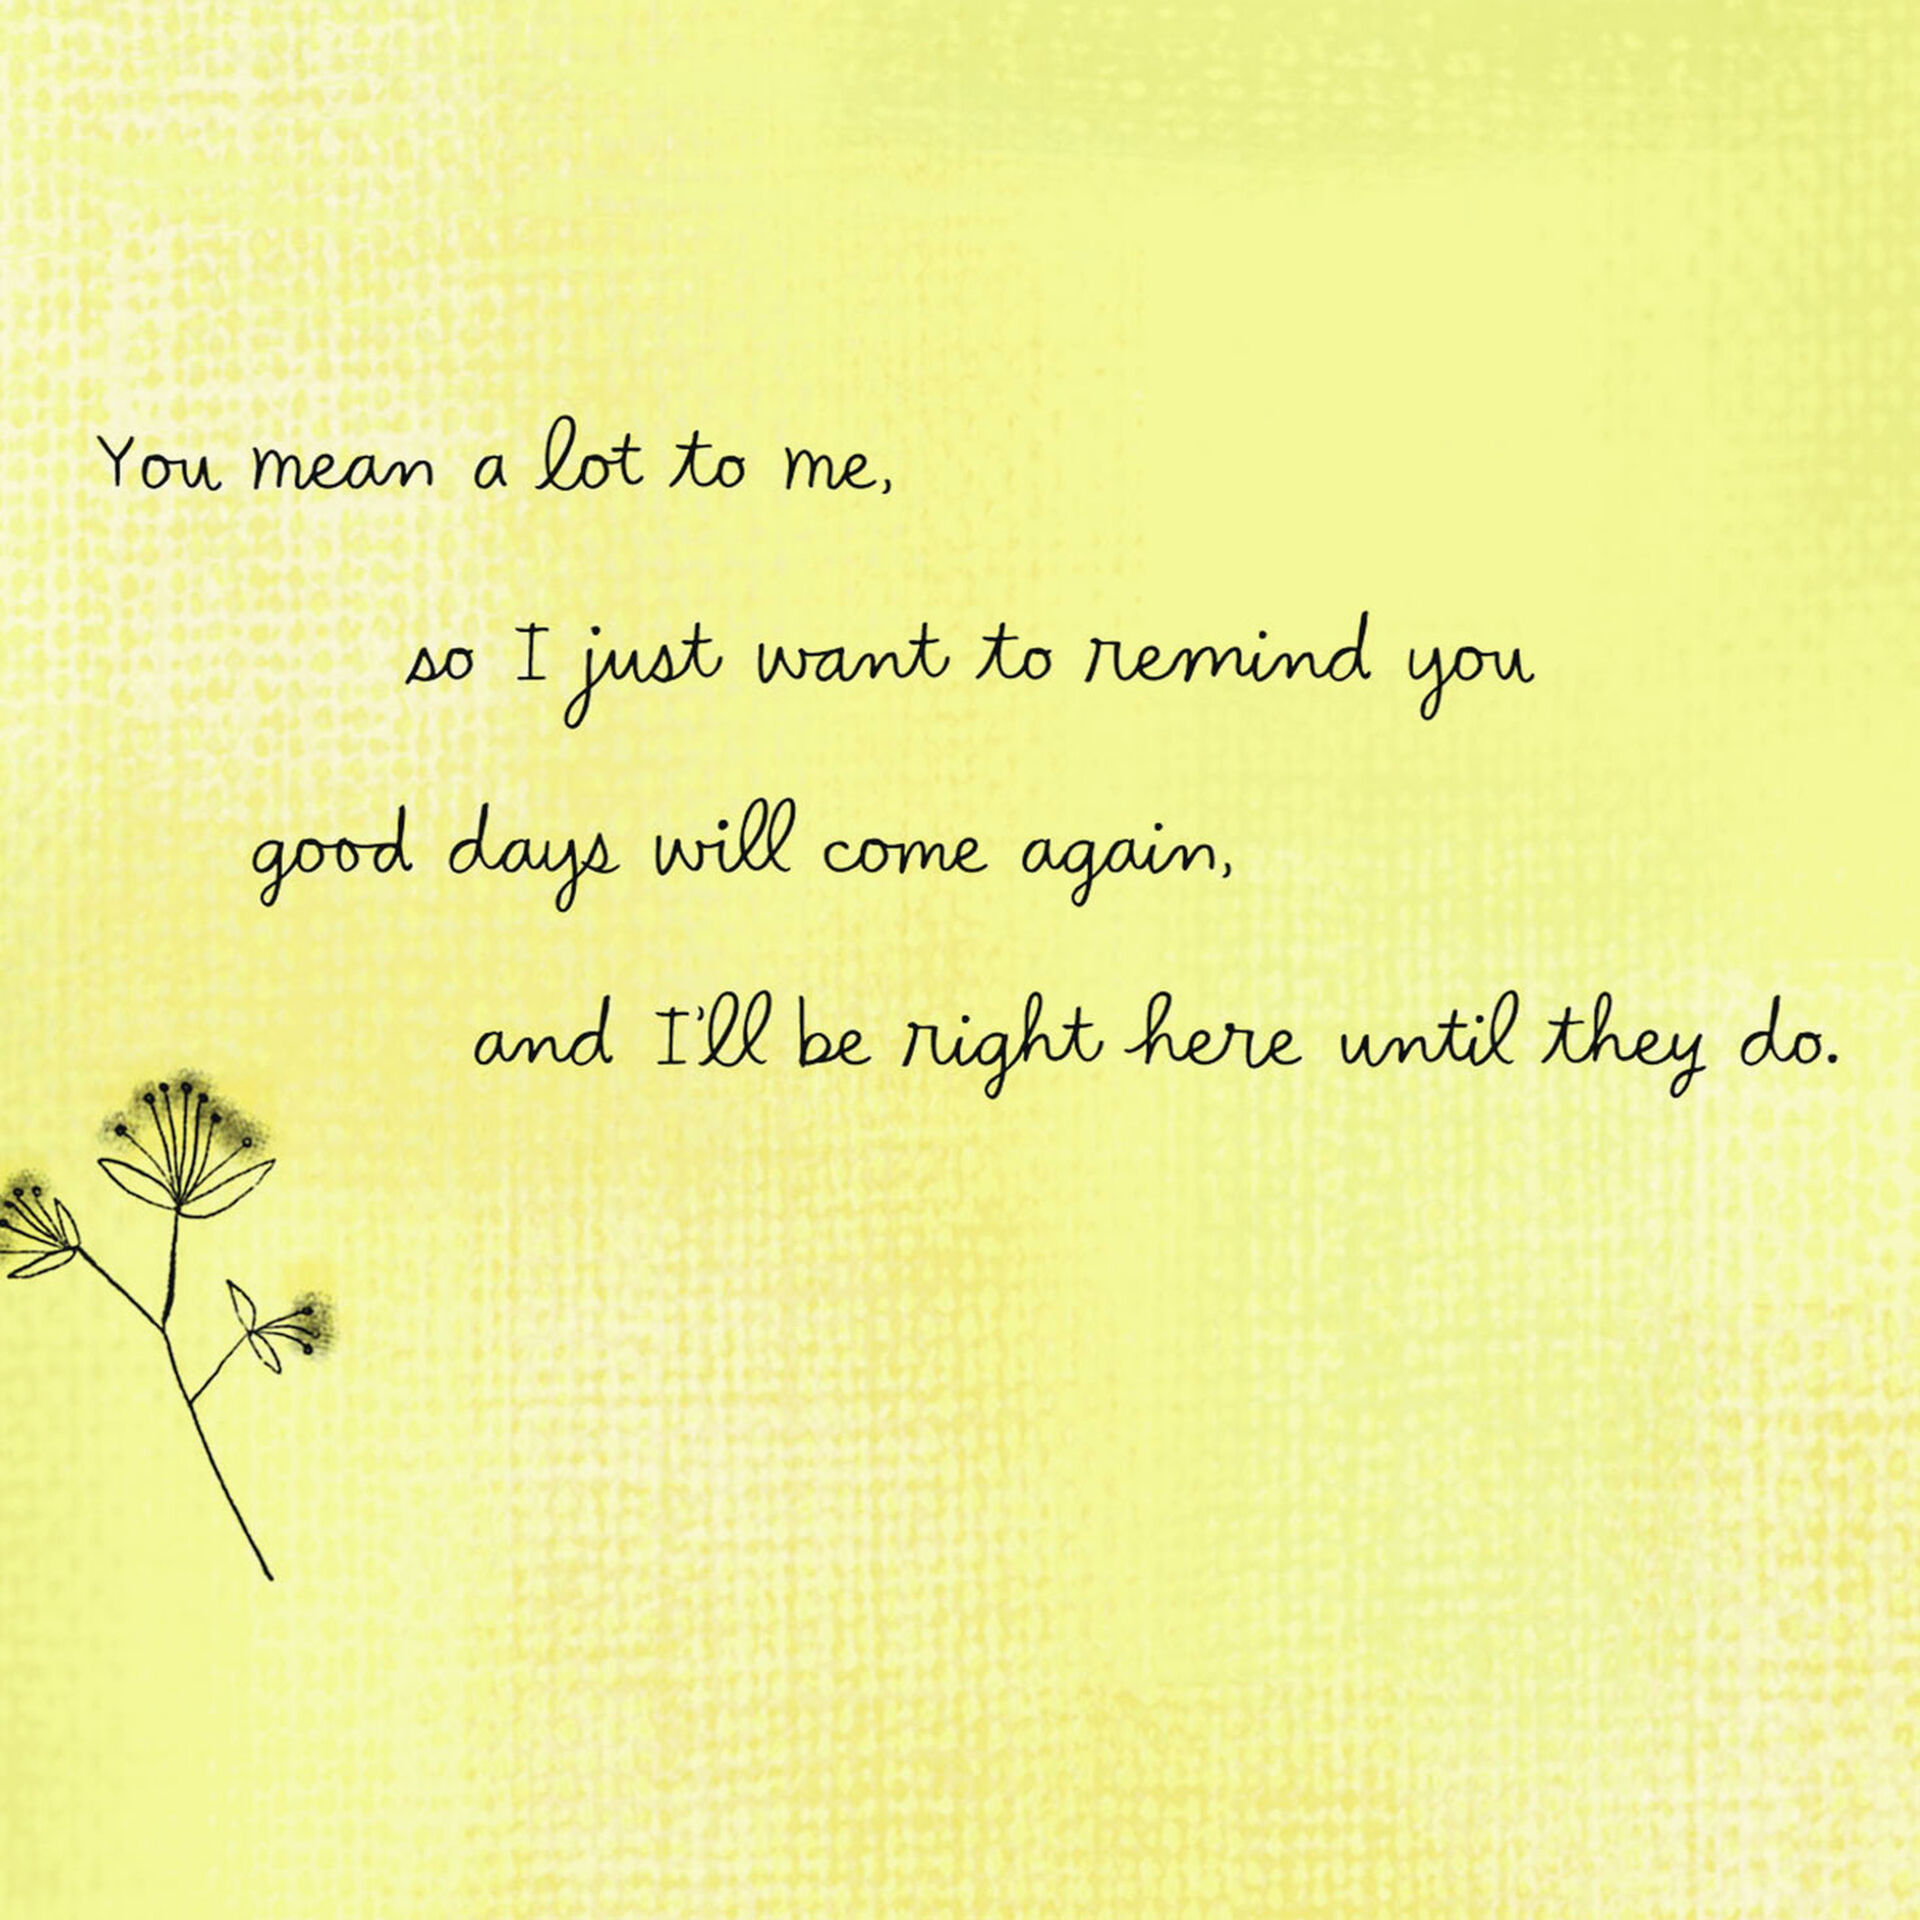 You mean a lot to me,
so I just want to remind you
good days will come again,
and I'll be right here until they do.